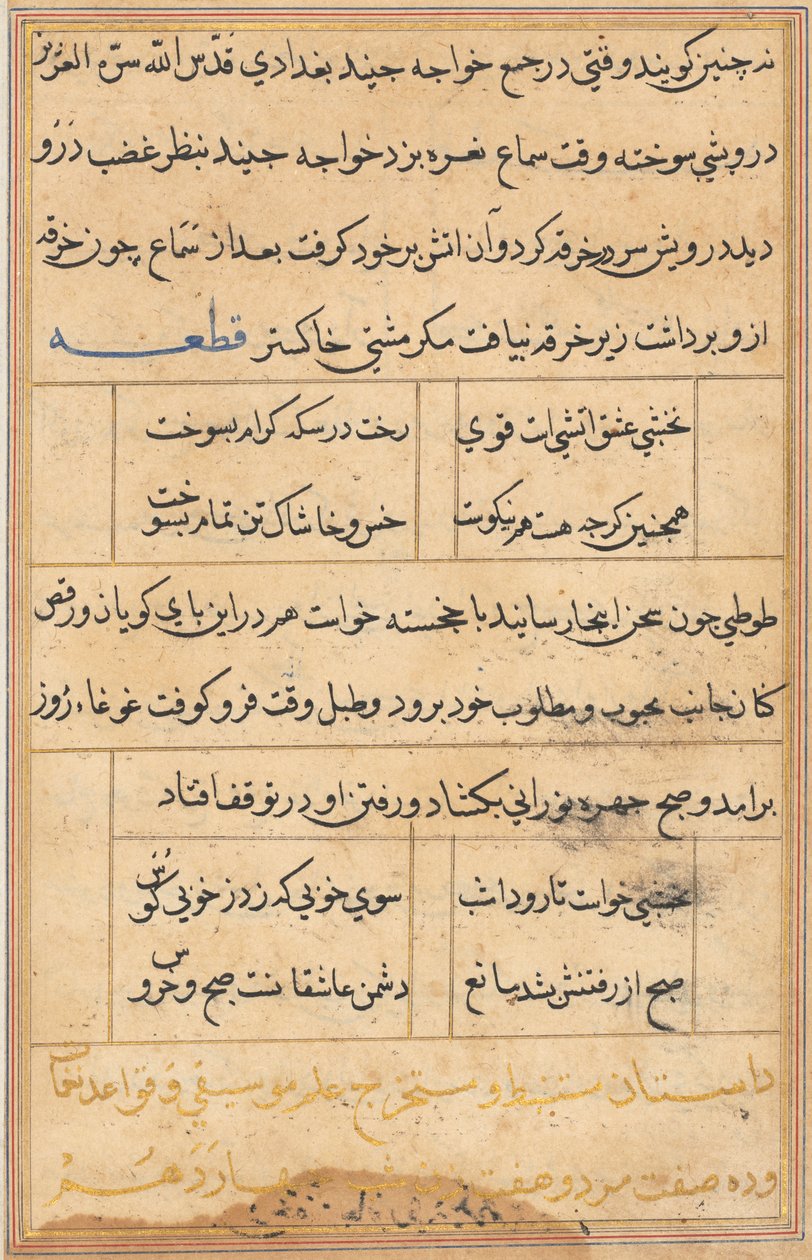 ند چنین کویند وقتی در جمع خواجه جنید بغدادي قدّس الله سرّه العزیز
درویشي سوخته وقت سماع نعره بزد خواجه جنید بنظر غضب دَرَو
دید درویش سر در خرقه کرد و آن اتش بر خود کرفت بعد از سَمَاع چون خرقه
ازو برداشت زیر خرقه نیافت مکر مشتي خاکستر قطعه
نخشبي عشق اتشي است قوي رخت در سکه کرام بسوخت
همچنین کرجه هست هم نیکوست خس و خاشاک تن تمام بسوخت
طوطي جون سخن اینجا رسانید با خجسته خواست هم در این باي کویان و رقص
کنان جانب محبوب و مطلوب خود برود و طبل وقت فرو کوفت غوغاء رُوز
برامد و صبح جهره نوراني بکشاد و رفتن او در توقف افتاد
نخشبي خواست تا رود امشب سوي خوبي که زد ز خوبي کوُس
صبح از رفتنش بشد مانع دشمن عاشقانست صبح و خروس
داستان مستنبط و مستخرج علم موسیقي و قواعد نغمات
وده صفت مرد و هفت زن شب جهاردَهُمْ